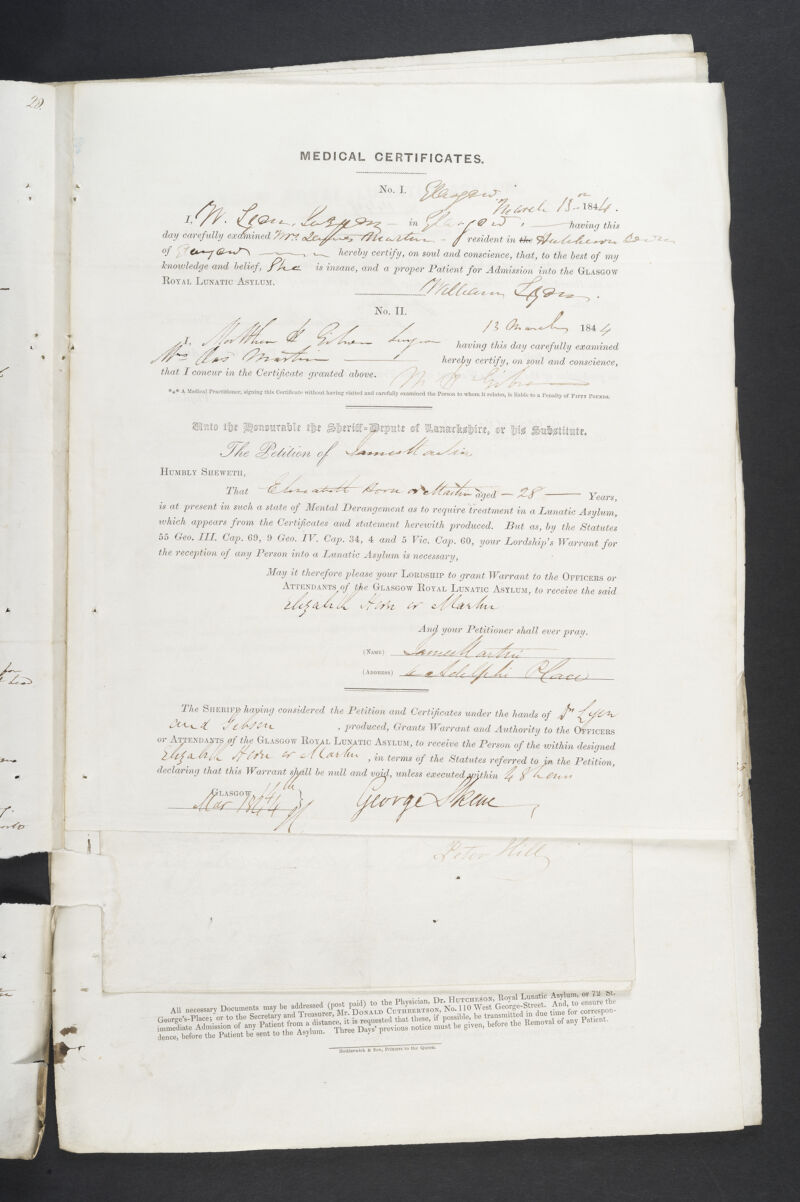 28.
MEDICAL CERTIFICATES.
No. I. Glasgow
March 13th 1844.
I, W. Lyon, Surgeon in Glasgow, having this
day carefully examined Mrs James Martin resident in the Hutcheson
of Glasgow hereby certify, on soul and conscience, that, to the best of my
knowledge and belief, She is insane, and a proper Patient for Admission into the GLASGOW
ROYAL LUNATIC ASYLUM.
William Lyon.
No. II.
13 March 1844
I, Matthew Gibson Surgeon having this day carefully examined
Mrs Jas Martin hereby certify, on soul and conscience,
that I concur in the Certificate granted above.
M Gibson
*** A Medical Practitioner, signing this Certificate without having visited and carefully examined the Person to whom it relates, is liable to a Penalty of FIFTY POUNDS.
Unto the Honourable the Sheriff-Depute of Lanarkshire, or his Substitute.
The Petition of James Martin
HUMBLY SHEWETH,
That Elizabeth Horn or Martin aged — 28 — Years,
is at present in such a state of Mental Derangement as to require treatment in a Lunatic Asylum,
which appears from the Certificates and statement herewith produced. But as, by the Statutes
55 Geo. III. Cap. 69, 9 Geo. IV. Cap. 34, 4 and 5 Vic. Cap. 60, your Lordship's Warrant for
the reception of any Person into a Lunatic Asylum is necessary,
May it therefore please your LORDSHIP to grant Warrant to the OFFICERS or
ATTENDANTS of the GLASGOW ROYAL LUNATIC ASYLUM, to receive the said
Elizabeth Horn or Martin
And your Petitioner shall ever pray.
(NAME) James Martin
(ADDRESS) Adelphi Place
The SHERIFF having considered the Petition and Certificates under the hands of Dr Lyon
and Gibson , produced, Grants Warrant and Authority to the OFFICERS
or ATTENDANTS of the GLASGOW ROYAL LUNATIC ASYLUM, to receive the Person of the within designed
Elizabeth Horn or Martin , in terms of the Statutes referred to in the Petition,
declaring that this Warrant shall be null and void, unless executed within 48 hours
GLASGOW, 14th
Mar 1844
George Skene
Peter Hill
All necessary Documents may be addressed (post paid) to the Physician, Dr. HUTCHESON, Royal Lunatic Asylum, or 72 St.
George's-Place; or to the Secretary and Treasurer, Mr. DONALD CUTHBERTSON, No. 110 West George-Street. And, to ensure the
immediate Admission of any Patient from a distance, it is requested that these, if possible, be transmitted in due time for correspon-
dence, before the Patient be sent to the Asylum. Three Days' previous notice must be given, before the Removal of any Patient.
Hedderwick & Son, Printers to the Queen.